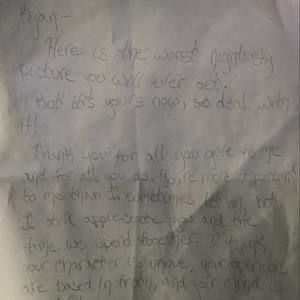 Ryan-
Here is the worst nightsky
picture you will ever get.
But it's yours now, so deal with
it!
Thank you for all you give to me
and for all you do. You're more important
to me than I sometimes let on, but
I still appreciate you and the
time we spend together. I think
your character is unique, your opinions
are based in truth, and your mind is